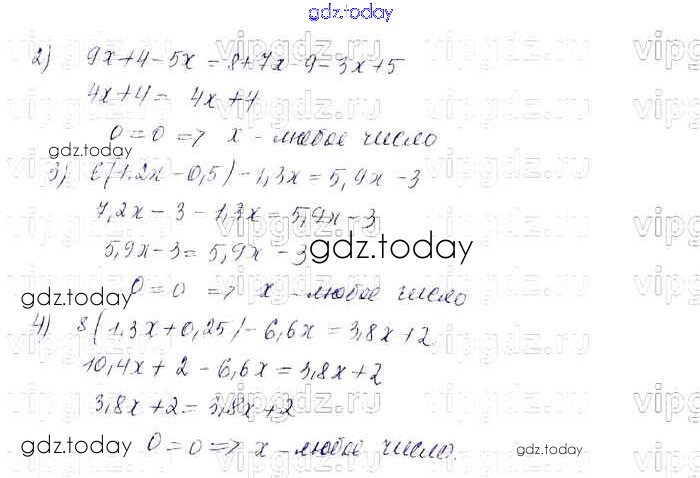 gdz.today
2) 9x+4-5x=8+7x-9-3x+5
4x+4= 4x+4
0=0 => x - любое число
gdz.today
3) 6(1.2x-0,5)-1,3x=5,9x-3
7,2x-3-1,3x=5,9x-3
5,9x-3=5,9x-3
gdz.today
0=0 => x - любое число
gdz.today
4) 8(1,3x+0,25)-6,6x=3,8x+2
10,4x+2-6,6x=3,8x+2
3,8x+2=3,8x+2
gdz.today
0=0=> x - любое число.
gdz.today